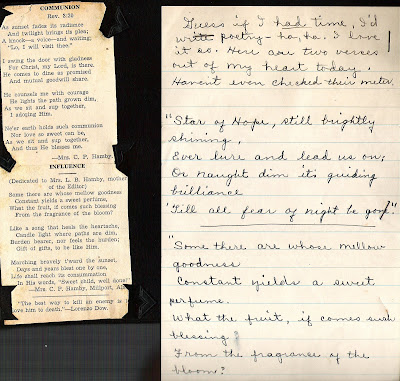 COMMUNION
Rev. 3:20
As sunset fades its radiance
And twilight brings its plea;
A knock—a voice—and waiting;
"Lo, I will visit thee."
I swing the door with gladness
For Christ, my Lord, is there,
He comes to dine as promised
And mutual goodwill share.
He counsels me with courage
He lights the path grown dim,
As we sit and sup together,
I adoring Him.
Ne'er earth holds such communion
Nor love so sweet can be,
As we sit and sup together,
And thus He blesses me.
—Mrs. C. P. Hamby.
INFLUENCE
(Dedicated to Mrs. L. B. Hamby, mother
of the Editor)
Some there are whose mellow goodness
Constant yields a sweet perfume,
What the fruit, if comes such blessing
From the fragrance of the bloom?
Like a song that heals the heartache,
Candle light where paths are dim,
Burden bearer, nor feels the burden;
Gift of gifts, to be like Him.
Marching bravely t'ward the sunset,
Days and years bleat one by one,
Life shall reach its consummation
In His words, "Sweet child, well done"
—Mrs C. P. Hamby, Millport,
"The best way to kill an enemy is
love him to death."—Lorenzo Dow.
Guess if I had time, I'd
write poetry - ha, ha. I love
it so. Here are two verses
out of my heart today.
Haven't even checked their meter.
"Star of Hope, still brightly
shining,
Ever lure and lead us on;
Or naught dim its guiding
brilliance
'Till all fear of night be gone."
"Some there are whose mellow
goodness
Constant yields a sweet
perfume.
What the fruit, if comes such
blessing
From the fragrance of the
bloom?